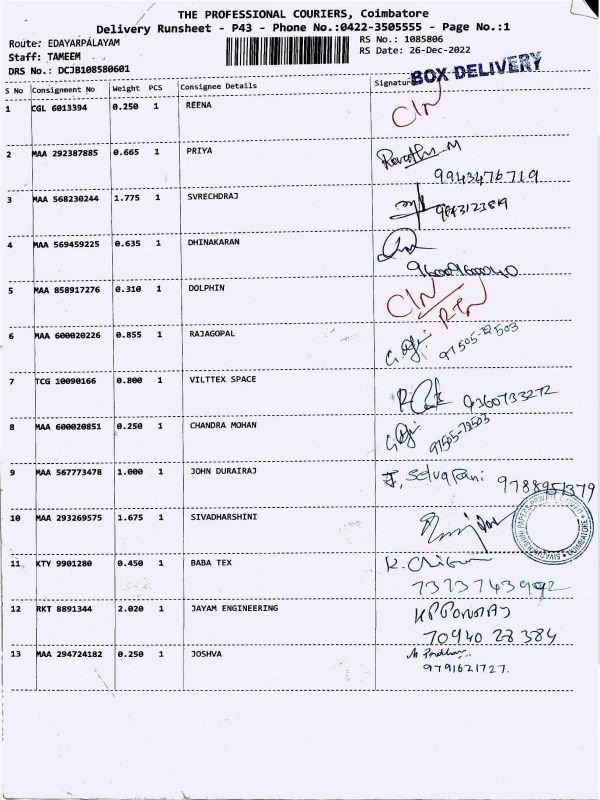 THE PROFESSIONAL COURIERS, Coimbatore
Delivery Runsheet - P43 - Phone No.:0422-3505555 - Page No.:1
Route: EDAYARPALAYAM
RS No.: 1085806
Staff: TAMEEM
RS Date: 26-Dec-2022
DRS No.: DCJB108580601
BOX DELIVERY
S No Consignment No Weight PCS Consignee Details Signature
1 CGL 6013394 0.250 1 REENA CIN
2 MAA 292387885 0.665 1 PRIYA
9943476719
3 MAA 568230244 1.775 1 SVRECHDRAJ
4 MAA 569459225 0.635 1 DHINAKARAN
9600960040
5 MAA 858917276 0.310 1 DOLPHIN CIN
RTN
6 MAA 600020226 0.855 1 RAJAGOPAL 97505-72503
7 TCG 10090166 0.800 1 VILTTEX SPACE 9360733272
8 MAA 600020851 0.250 1 CHANDRA MOHAN 97505-72503
9 MAA 567773478 1.000 1 JOHN DURAIRAJ J, Selvarani 9788951379
10 MAA 293269575 1.675 1 SIVADHARSHINI
COIMBATORE
11 KTY 9901280 0.450 1 BABA TEX
7373743992
12 RKT 8891344 2.020 1 JAYAM ENGINEERING
70940 28384
13 MAA 294724182 0.250 1 JOSHVA
9791621727.